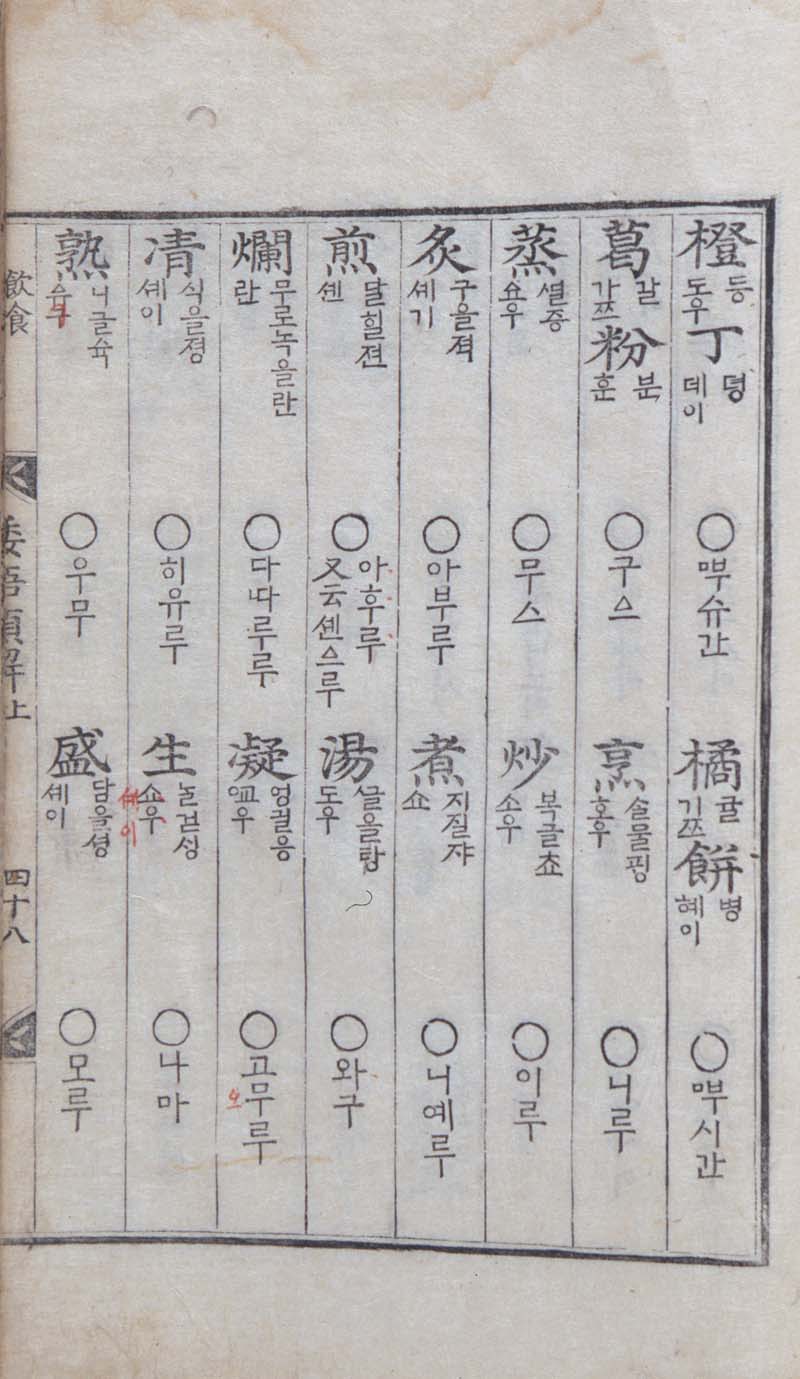 橙 등 도우 丁 뎡 데이 ○ 뿌슈간
橘 귤 기쯔 餠 병 혜이 ○ 뿌시간
葛 갈 가쯔 粉 분 훈 ○ 구ᅀᅳ
烹 ᄉᆞᆯ물핑 호우 ○ 니루
蒸 ᄧᅵᆯ증 쇼우 ○ 무스
炒 복글쵸 소우 ○ 이루
炙 구을젹 셰기 ○ 아부루
煮 지질쟈 쇼 ○ 니예루
煎 달힐젼 셴 ○ 아후루 又云셴ᅀᅳ루
湯 ᄭᅳᆯ을탕 도우 ○ 와구
爛 무로녹을란 란 ○ 다따루루
凝 엉긜응 교우 ○ 고무루 오
凊 식을졍 셰이 ○ 히유루
生 ᄂᆞᆯ 싱 쇼우 ○ 나마
熟 니글슉 슈구 ○ 우무
盛 담을셩 셰이 ○ 모루
飮食
倭語類解上
四十八